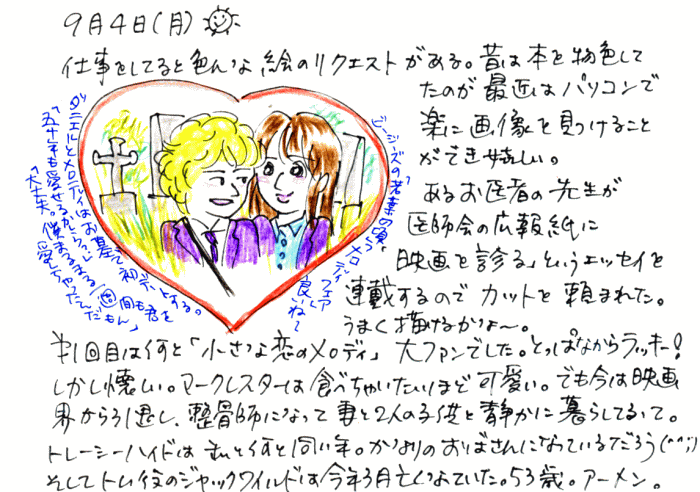 9月4日(月)
仕事をしてると色んな絵のリクエストがある。昔は本を物色して
たのが最近はパソコンで
楽に画像を見つけること
ができ嬉しい。
あるお医者の先生が
医師会の広報紙に
「映画を診る」というエッセイを
連載するのでカットを頼まれた。
うまく描けるかな〜。
ダニエルとメロディはお墓で初デートする。
「五十年も愛せる
「大丈夫。僕まるまる1週間も君を
愛しちゃったんだもん」
ビージーズの「若葉の頃」や
「メロディフェア」
良いね〜
第1回目は何と「小さな恋のメロディ」大ファンでした。とっぱなからラッキー!
しかし懐しい。マークレスターは食べちゃいたいほど可愛い。でも今は映画
界から引退し、整骨師になって妻と2人の子供と静かに暮らしてるって。
トレーシーハイドは私と何と同い年。かなりのおばさんになっているだろう(^^;)
そしてトム役のジャックワイルドは今年3月亡くなっていた。53歳。アーメン。